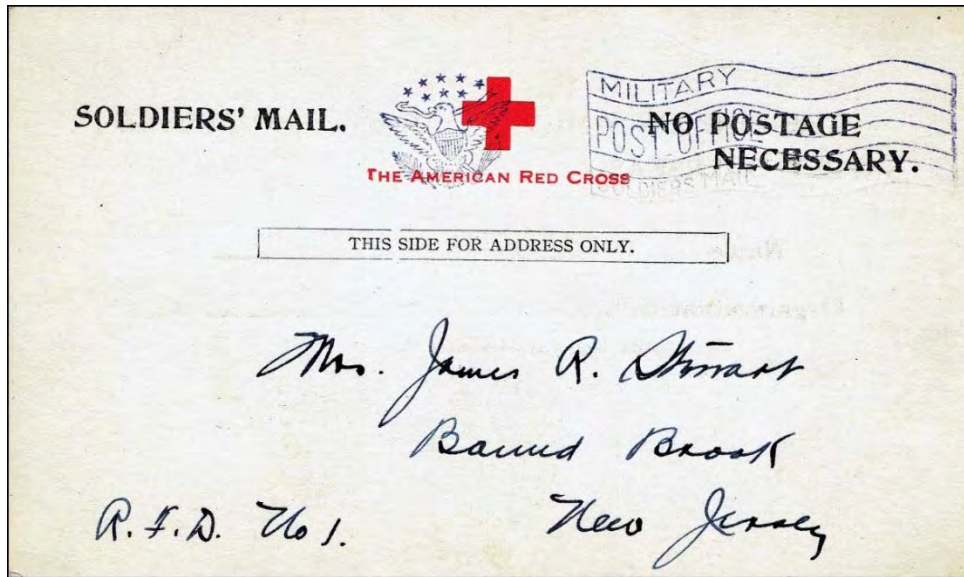 SOLDIERS' MAIL.
THE AMERICAN RED CROSS
MILITARY
POST OFFICE
SOLDIERS MAIL
NO POSTAGE
NECESSARY.
THIS SIDE FOR ADDRESS ONLY.
Mrs. James R.
Bound Brook
R.F.D. No 1. New Jersey